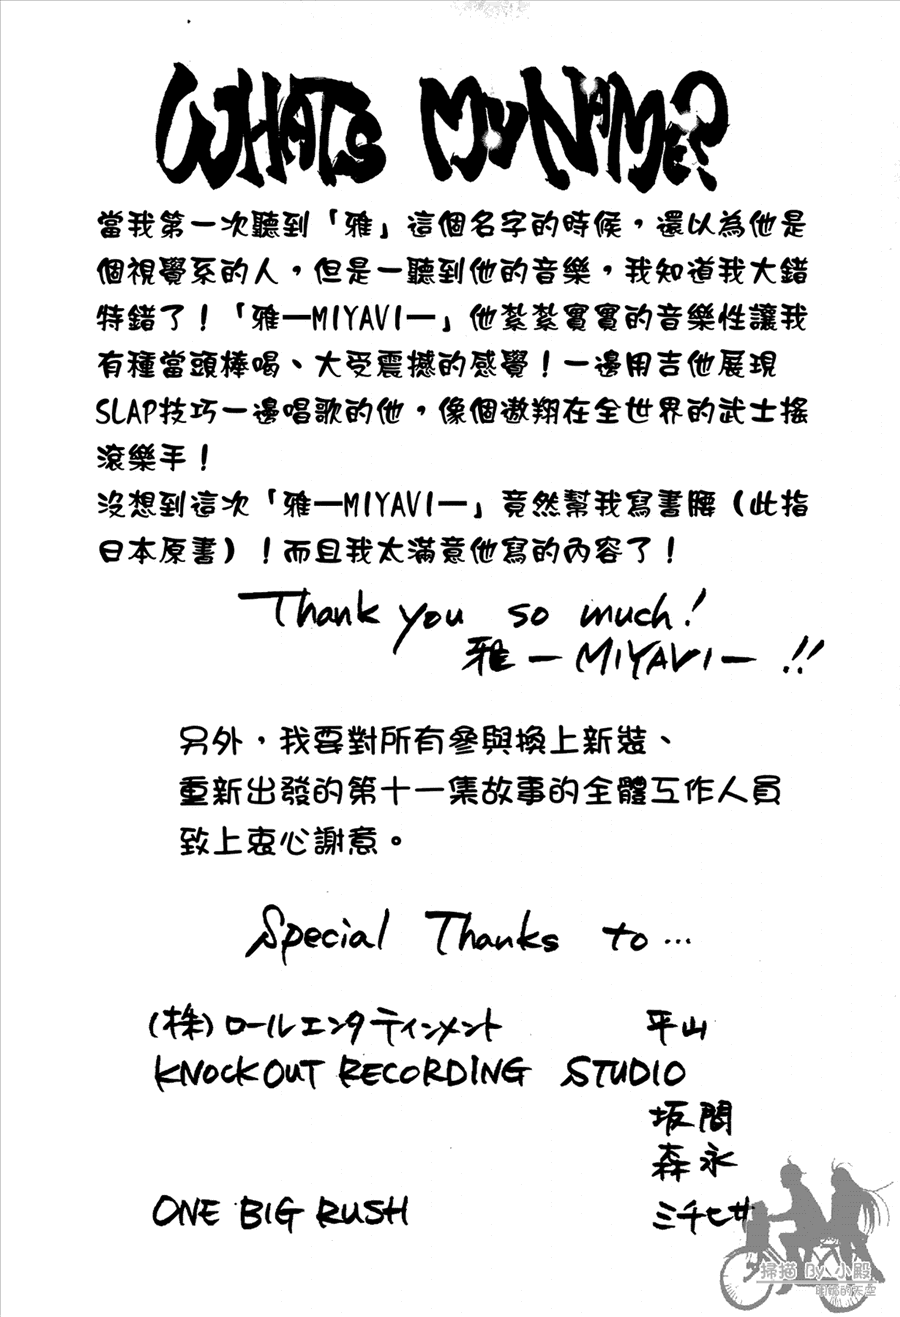 WHAT'S MY NAME?
當我第一次聽到「雅」這個名字的時候，還以為他是
個視覺系的人，但是一聽到他的音樂，我知道我大錯
特錯了！「雅—MIYAVI—」他紮紮實實的音樂性讓我
有種當頭棒喝、大受震撼的感覺！一邊用吉他展現
SLAP技巧一邊唱歌的他，像個遨翔在全世界的武士搖
滾樂手！
沒想到這次「雅—MIYAVI—」竟然幫我寫書腰（此指
日本原書）！而且我太滿意他寫的內容了！
Thank you so much!
雅—MIYAVI—!!
另外，我要對所有參與換上新裝、
重新出發的第十一集故事的全體工作人員
致上衷心謝意。
Special Thanks to...
(株)ロールエンタティンメント 平山
KNOCKOUT RECORDING STUDIO
坂間
森永
ONE BIG RUSH 三千七廿
掃描 By 小殿
的天空